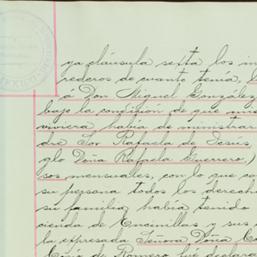 ya cláusula sexta los in
rederos de cuanto tenía,
á Don Miguel González
bajo la condición de que
viviera había de ministrar
dre Sor Rafaela de Jesús
glo Doña Rafaela Guerrero,
sos mensuales, con lo que
su persona todos los derecho
su familia había tenido
cienda de Encinillas y sus
la expresada Señora Doña
de Romero fué declara